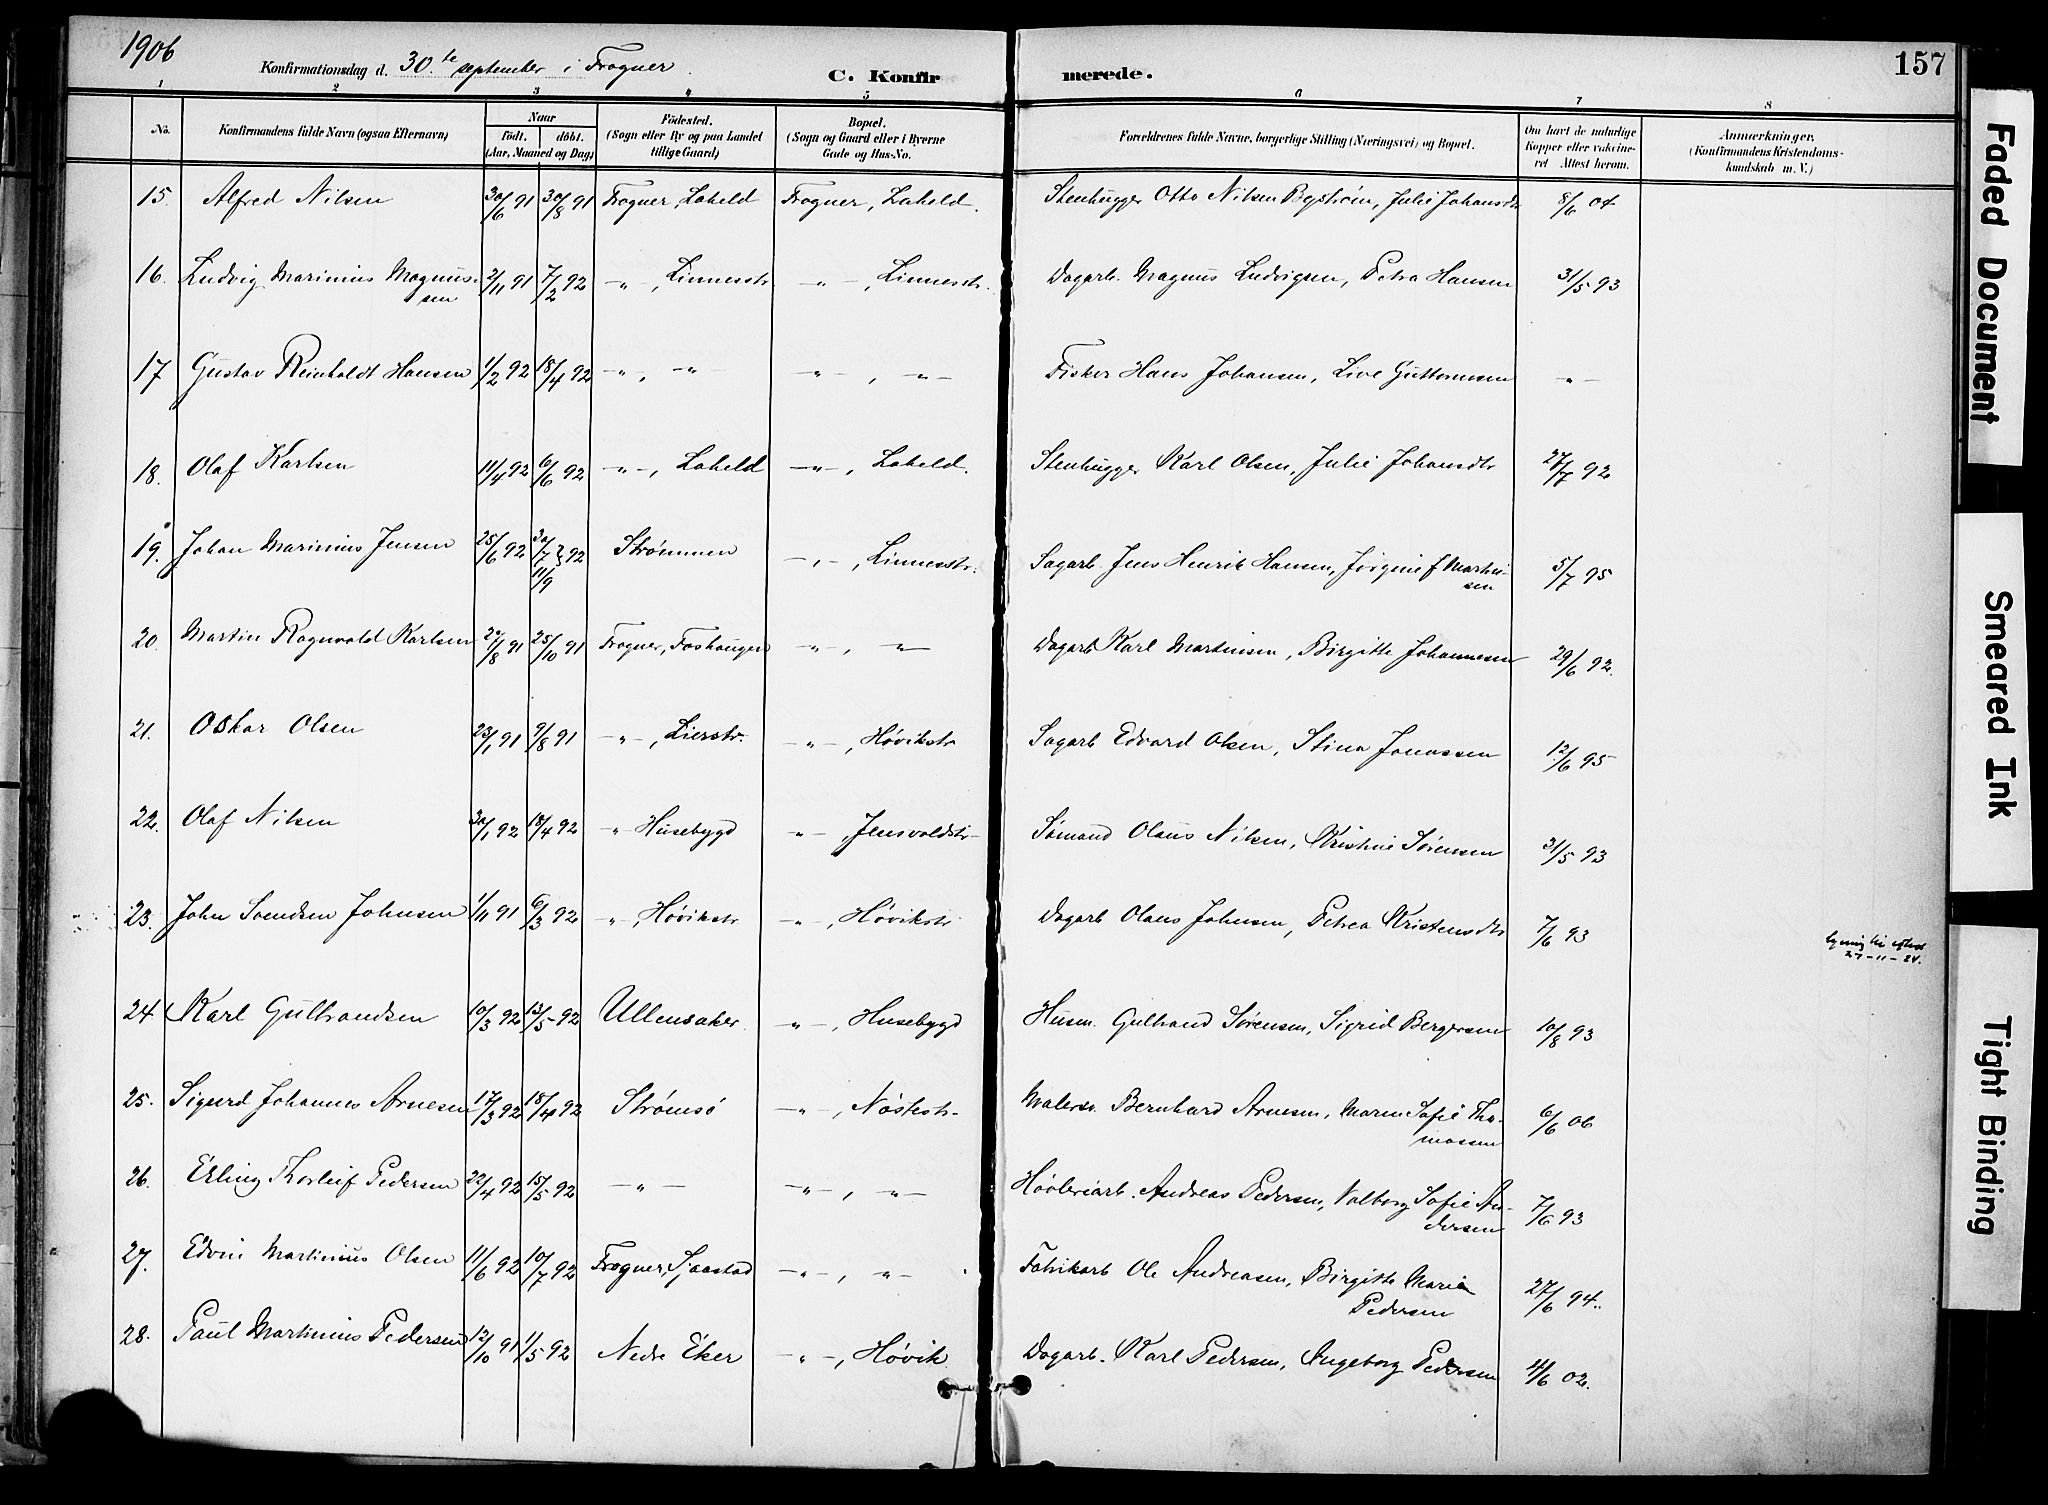 1906
Konfirmationsdag d. 30.te september i Frogner.
C. Konfirmerede.
157
1 2 3 4 5 6 7 8
No.
Konfirmandens fulde Navn (ogsaa Efternavn)
Naar
födt. döbt.
(Aar, Maaned og Dag)
Födested.
(Sogn eller By og paa Landet
tillige Gaard)
Bopæl.
(Sogn og Gaard eller i Byerne
Gade og Hus-No.
Forældrenes fulde Navne, borgerlige Stilling (Næringsvei) og Bopæl.
Om havt de naturlige
Kopper eller vakcine-
ret Attest herom.
Anmærkninger.
(Konfirmandens Kristendoms-
kundskab m. V.)
15. Alfred Nilsen 30/6 91 30/8 91 Frogner, Laheld Frogner, Laheld. Stenhugger Otto Nilsen Byström, Julie Johansdtr 8/6 04
16. Ludvig Marinius Magnus- 2/11 91 7/2 92 -"-, Linnesstr. -"-, Linnesstr. Dagarb. Magnus Ludvigsen, Petra Hansen 31/5 93
sen
17 Gustav Reinholdt Hansen 1/2 92 18/4 92 -"-, -"- -"-, -"- Fisker Hans Johansen, Live Guttormsen -"-
18. Olaf Karlsen 11/4 92 6/6 92 -"-, Laheld -"-, Laheld. Stenhugger Karl Olsen, Julie Johansdtr 27/7 92
19. Johan Marinius Jensen 25/6 92 30/7 11/9 } 92 Strømmen -"-, Linnesstr. Sagarb. Jens Henrik Hansen, Jørgine f Martin- 5/7 95
sen
20. Martin Ragnvald Karlsen 20/8 91 25/10 91 Frogner, Foshaugen -"-, -"- Dagarb Karl Martinsen, Birgitte Johannesen 29/6 92.
21. Oskar Olsen 23/1 91 9/8 91 -"-, Lierstr. -"-, Høvikstr Sagarb Edvard Olsen, Stina Jonassen 12/6 95
22. Olaf Nilsen 30/1 92 18/4 92 -"- Husebygd -"-, Jensvoldstr- Sømand Olaus Nilsen, Kristine Sørensen 31/5 93
23. John Svendsen Johnsen 1/11 91 6/3 92 -"-, Høvikstr -"-, Høvikstr Dagarb Olaus Johnsen, Petrea Kristensdtr 7/6 93
27-11-24.
24 Karl Gulbrandsen 10/3 92 13/5 92 Ullensaker -"-, Husebygd Husm. Gulbrand Sørensen, Sigrid Bergersen 10/8 93
25. Sigurd Johannes Arnesen 17/3 92 18/4 92 Strømsö -"-, Nöstestr- Malersv. Bernhard Arnesen, Maren Sofie Tho- 6/6 06
massen
26. Erling Thorleif Pedersen 22/4 92 15/5 92 -"- -"-, -"- Høvleriarb. Andreas Pedersen, Valborg Sofie An- 7/6 93
dersen
27. Edvin Martinius Olsen 11/6 92 10/7 92 Frogner, Sjaastad -"-, -"- Fabrikarb Ole Andreasen, Birgitte Marie 27/6 94.
Pedersen
28. Paul Martinius Pedersen 12/10 91 1/5 92 Nedre Eker -"-, Høvik Dagarb. Karl Pedersen, Ingeborg Pedersen 4/6 02.
Faded Document
Smeared Ink
Tight Binding